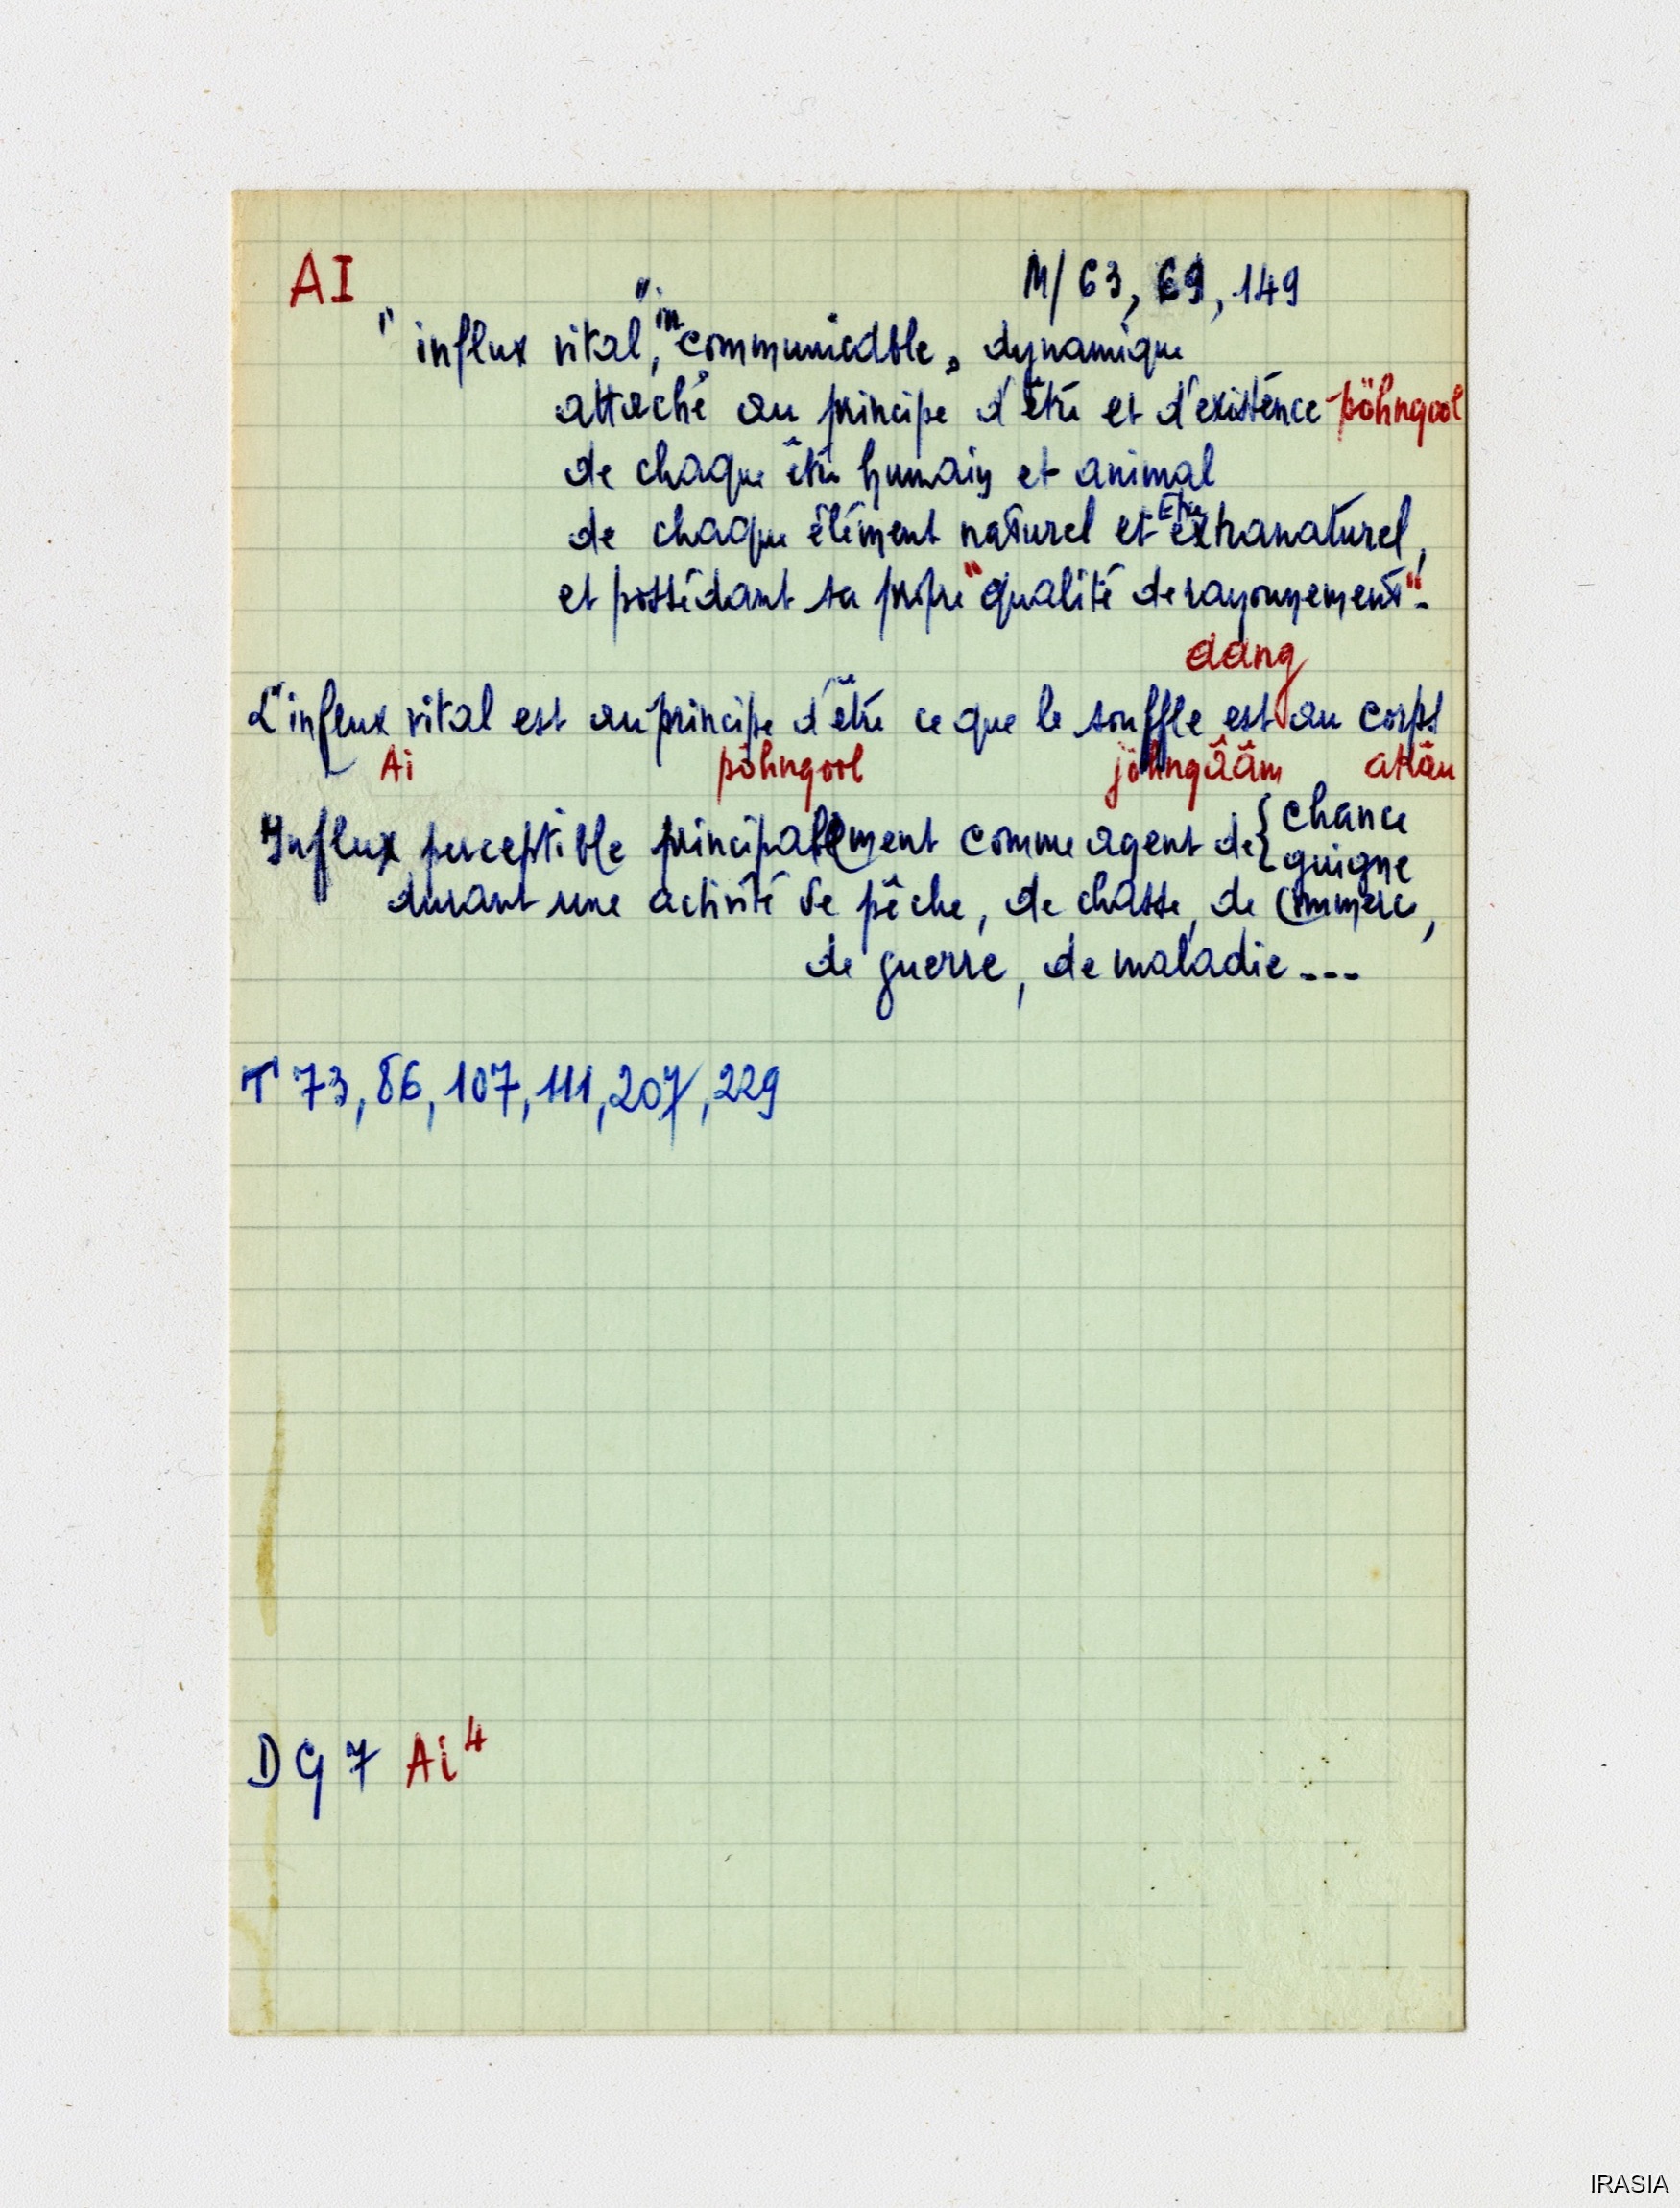 AI
M/ 63, 69, 149
"influx vital", incommunicable, dynamique
attaché au principe d'être et d'existence - pöhngool
de chaque être humain et animal
de chaque élément naturel et Etre extranaturel,
et possédant sa propre "qualité de rayonnement".
aang
L'influx vital est au principe d'être ce que le souffle est au corps
Ai pöhngool jöhngââm akâu
Influx perceptible principalement comme agent de { chance
guigne
durant une activité de pêche, de chasse, de commerce,
de guerre, de maladie ---
T 73, 86, 107, 111, 207, 229
DG 7 Ai 4
IRASIA